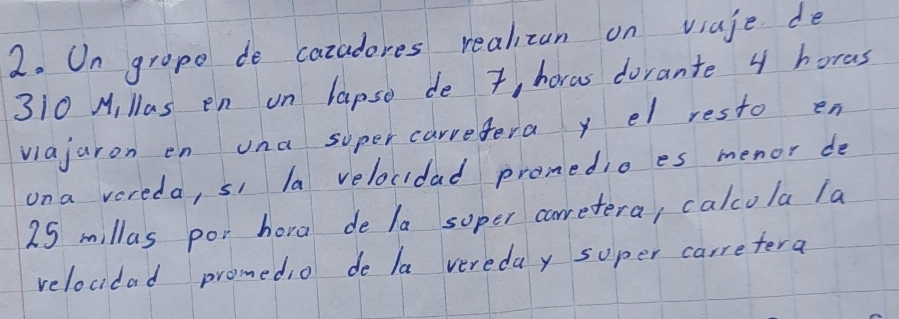 2. Un grupo de cazadores realizan un viaje de
310 Millas en un lapso de 7, horas durante 4 horas
viajaron en una super carretera y el resto en
una vereda, si la velocidad promedio es menor de
25 millas por hora de la super carretera, calcula la
velocidad promedio de la vereda y super carretera